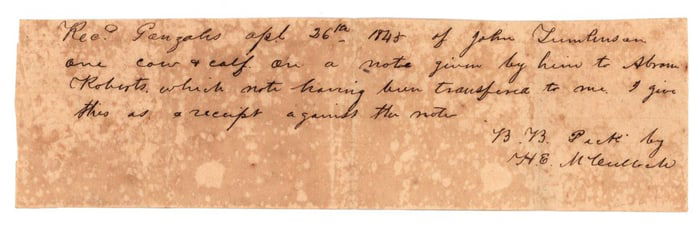 Recd. Gonzales apl 26th 1848 of John Tumlinson
one cow & calf on a note given by him to Abram
Roberts, which note having been transfered to me I give
this as a receipt against the note
B. B. Peck by
H E. McCulloch